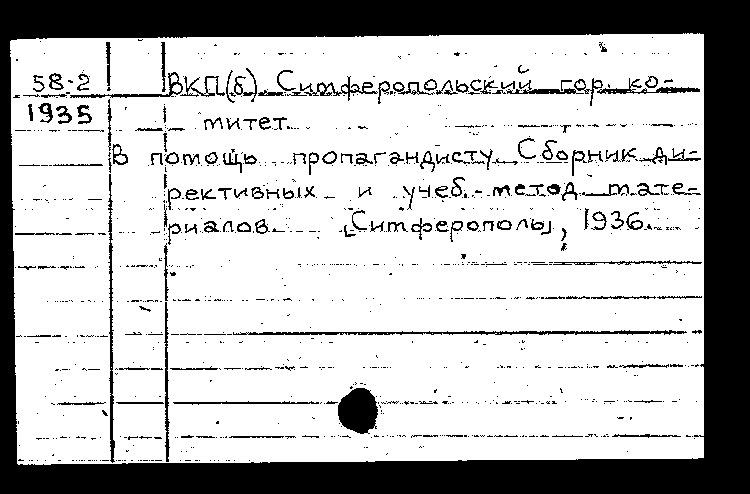 58-2
1935
ВКП(б). Симферопольский гор. ко-
митет.
В помощь пропагандисту. Сборник ди-
рективных и учеб.-метод. мате-
риалов. [Симферополь], 1936.